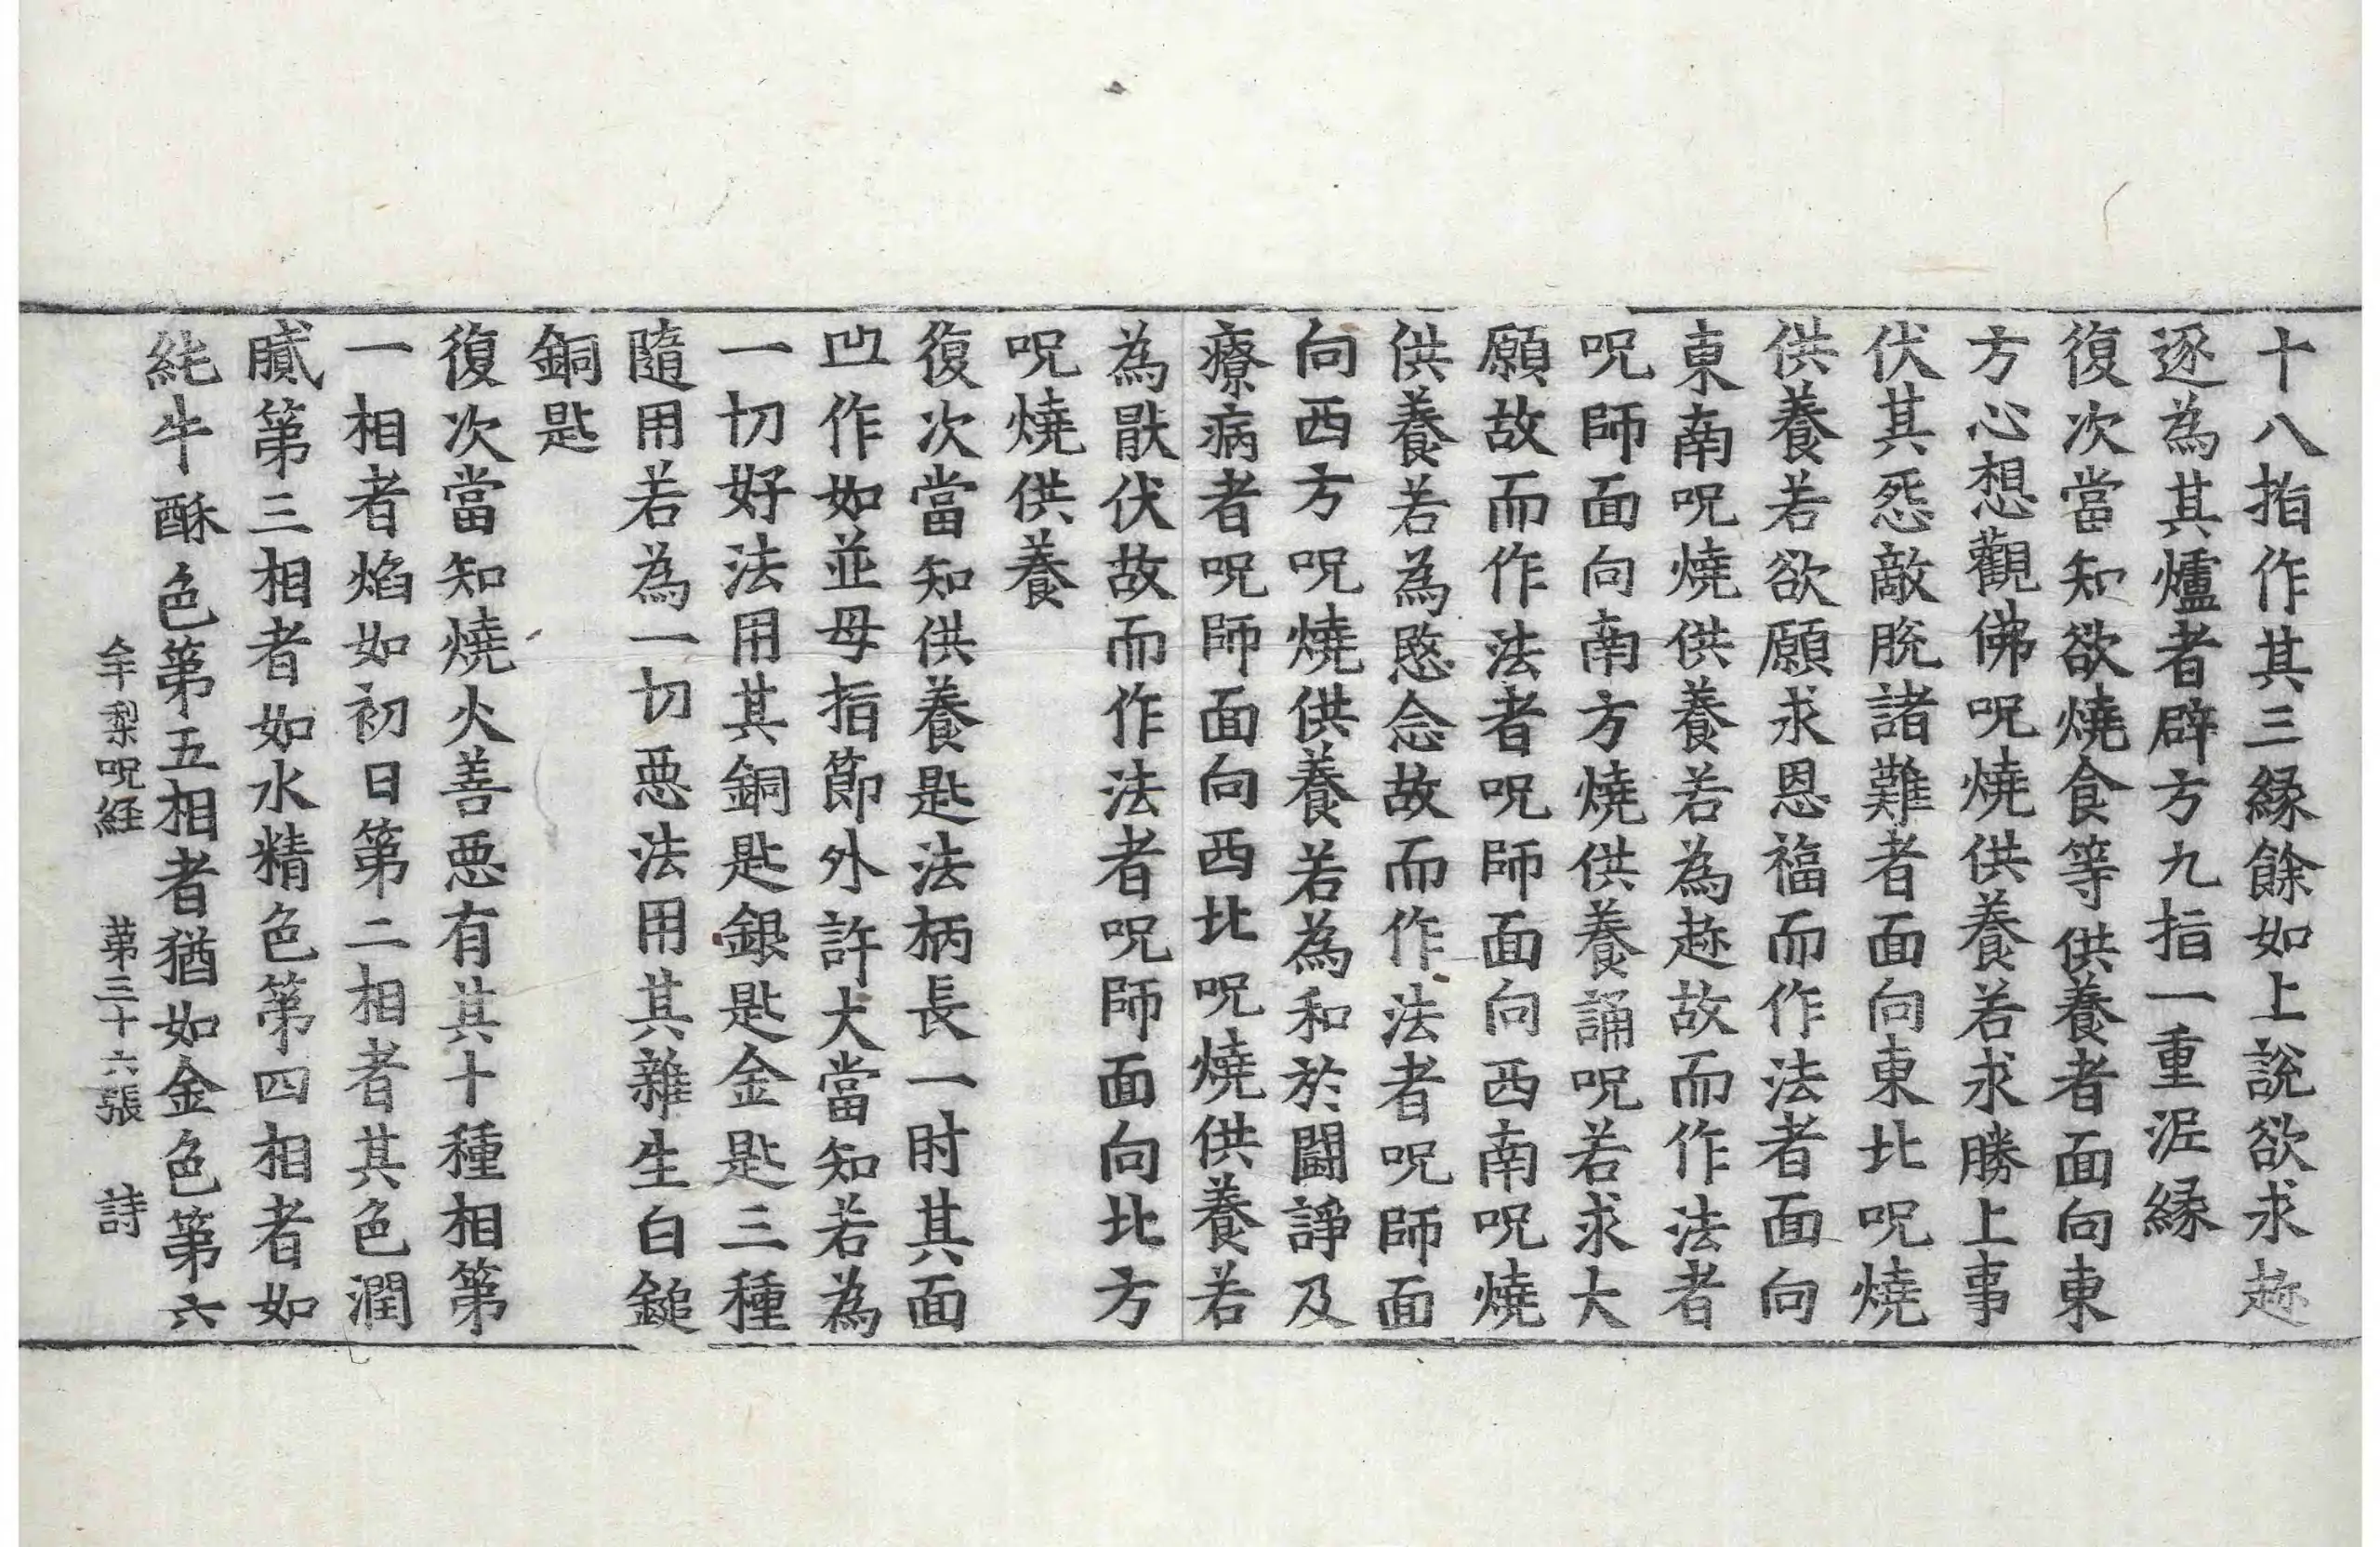 十八指作其三縁餘如上說欲求趂
逐為其爐者辟方九指一重泥縁
復次當知欲燒食等供養者面向東
方心想觀佛呪燒供養若求勝上事
伏其怨敵脫諸難者面向東北呪燒
供養若欲願求恩福而作法者面向
東南呪燒供養若為趂故而作法者
呪師面向南方燒供養誦呪若求大
願故而作法者呪師面向西南呪燒
供養若為愍念故而作法者呪師面
向西方呪燒供養若為和於鬪諍及
療病者呪師面向西北呪燒供養若
為猒伏故而作法者呪師面向北方
呪燒供養
復次當知供養匙法柄長一肘其面
凹作如並母指節外許大當知若為
一切好法用其銅匙銀匙金匙三種
隨用若為一切惡法用其雜生白鎚
銅匙
復次當知燒火善惡有其十種相第
一相者焰如初日第二相者其色潤
膩第三相者如水精色第四相者如
純牛酥色第五相者猶如金色第六
牟梨呪経 第三十六張 詩